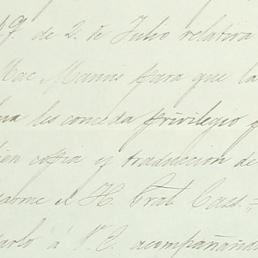 9 de 2 de Julio relativa
Mac Manus para que la
les conceda privilegio
copia y traduccion de
el H. Gral Cass =
á V. E. acompañand